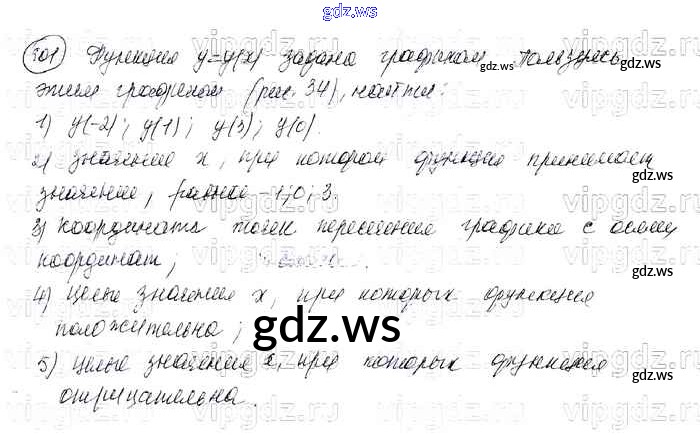 gdz.ws
501 Функция y=y(x) задана графиком. Пользуясь
gdz.ws
этим графиком (рис. 34), найти:
1) y(-2); y(1); y(3); y(0).
2) значение x, при котором функция принимает
gdz.ws
значение, равное -1; 0; 3.
3) координаты точек пересечения графика с осями
координат;
4) целые значения x, при которых функция
положительна;
gdz.ws
5) целые значения x, при которых функция
отрицательна.
gdz.ws